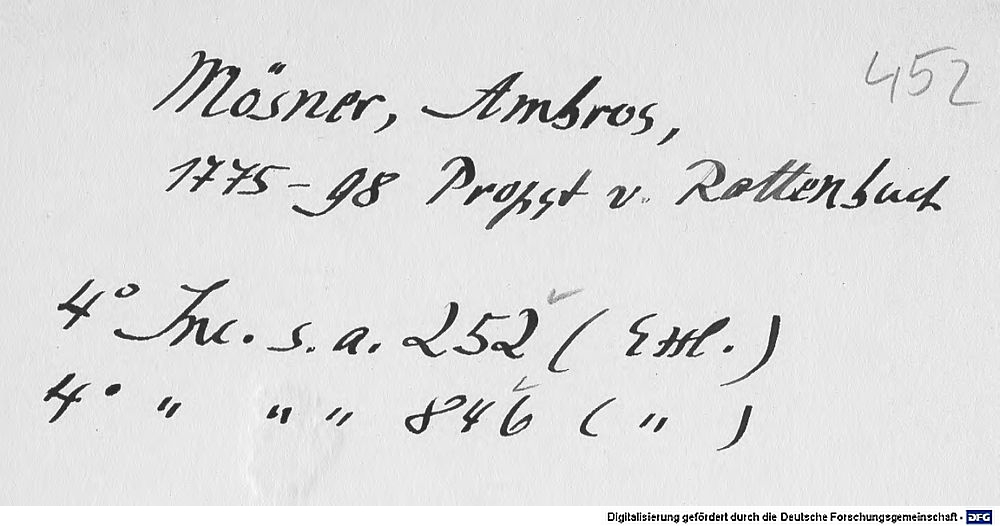 452
Mösner, Ambros,
1775-98 Propst v. Rottenbuch
4° Inc. s. a. 252 (Ettl.)
4° " " " 846 ( " )
Digitalisierung gefördert durch die Deutsche Forschungsgemeinschaft - DFG